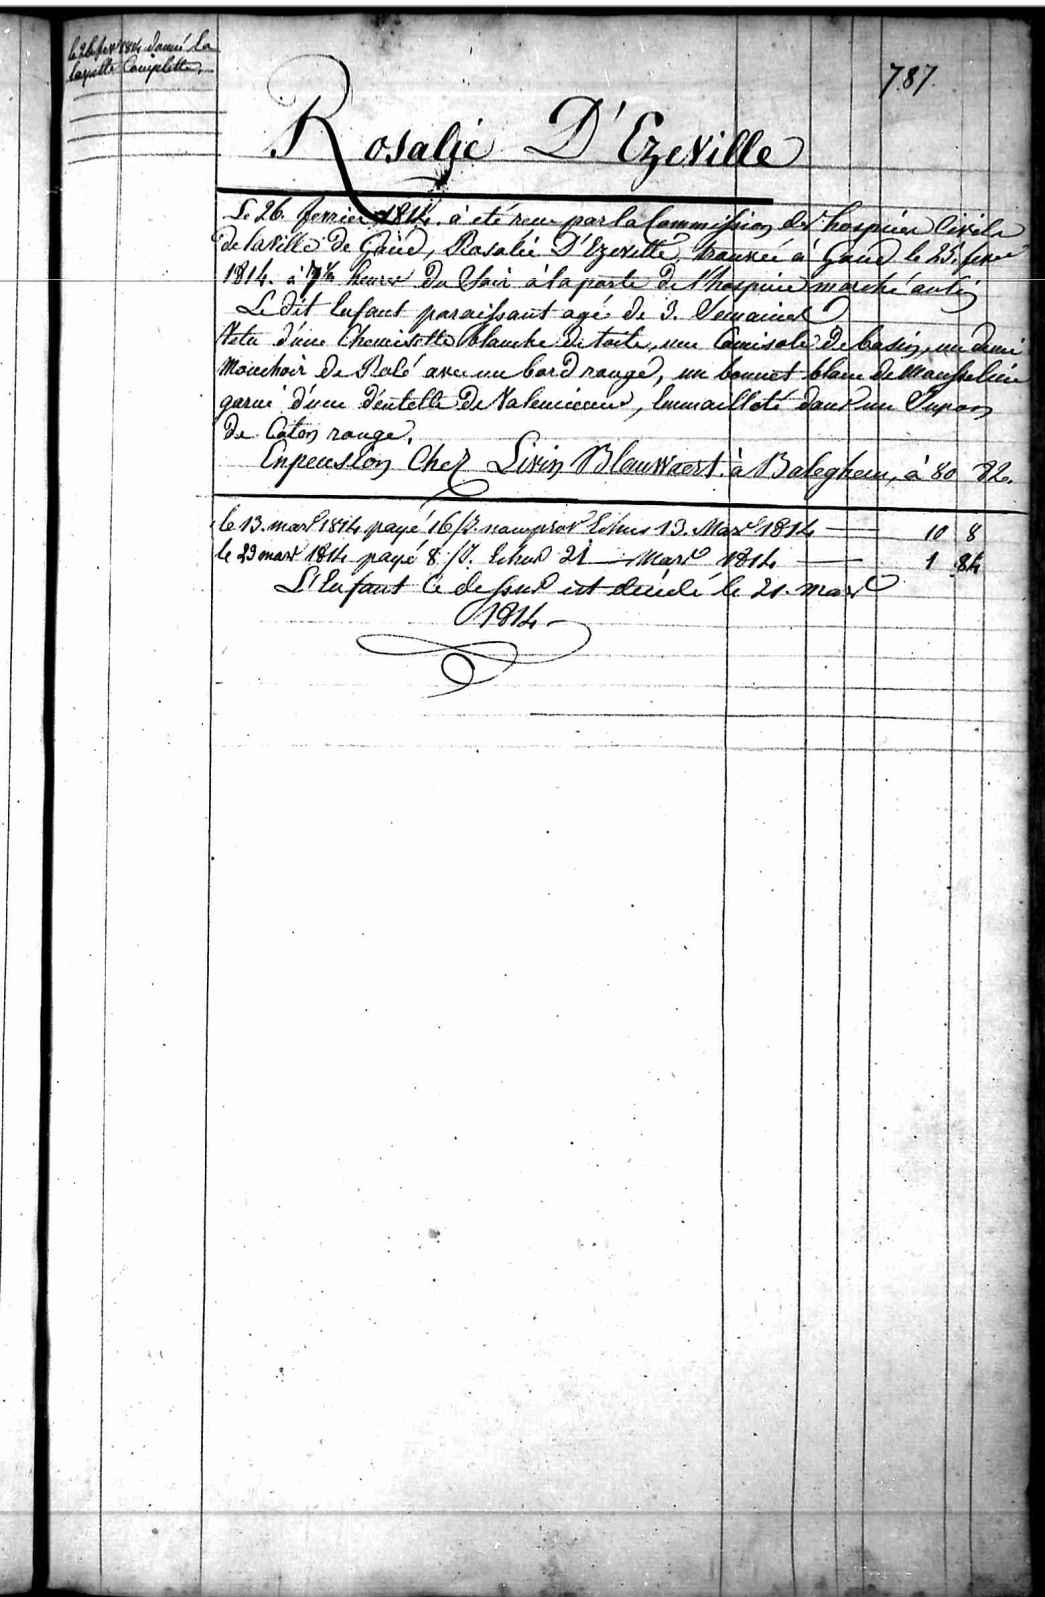 le 26 fevr 1814 donné la
layette Complette.
787
Rosalie D'Ezeville
Le 26. fevrier 1814. à eté reçu par la Commission des hospices Civils
de la Ville de Gand, Rosalie D'Ezeville, trouvée à Gand le 25. fevr
1814. à heures du Soir à la porte de l'hospice marché aux
Le dit Enfant paraissant agé de 3. Semaines
Vetu d'une Chemisette blanche de toile, une Camisole de basin, un demi
Mouchoir de avec un bord rouge, un bonnet blanc de Mousseline
garni d'une dentelle de Valencienne, Emmailloté dans un Jupon
de Coton rouge.
En pension Chez Livin Blauwaert à Baleghem, à 80 82.
le 13. mars 1814 payé 16/3. Echus 13. Mars 1814 — 10 8
le 23 mars 1814 payé 8 Echus 21 — Mars 1814 — 1 84
L'Enfant Ci dessus est décédé le 21. mars
1814 —